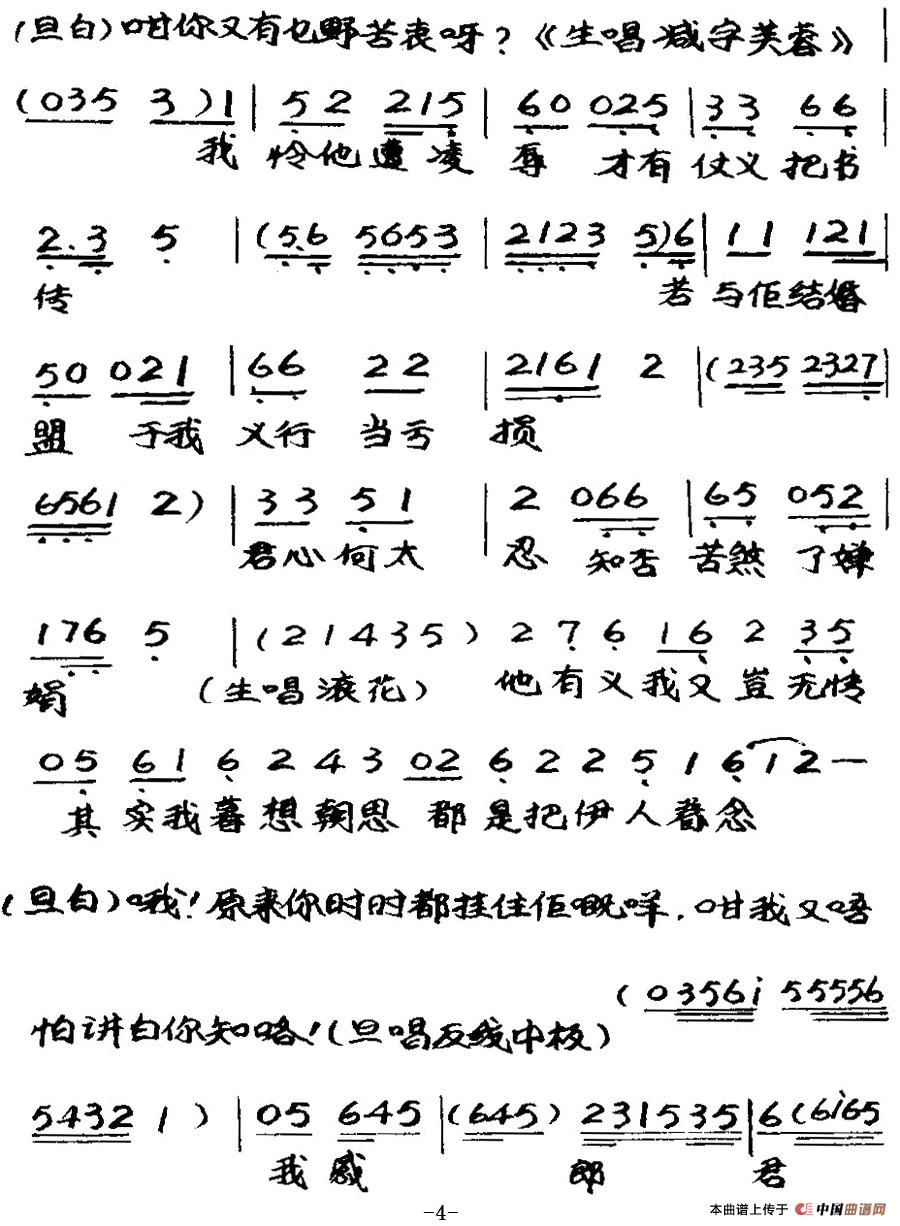 (旦白)咁你又有乜野苦衷呀?《生唱减字芙蓉》
(035 3)1 | 52 215 | 60 025 | 33 66
我 怜他遭凌 辱 才有 仗义 把书
2.3 5 | (5.6 5653 | 2123 5)6 | 11 121
传 若 与佢结婚
50 021 | 66 22 | 2161 2 | (235 2327 |
盟 于我 义行 当亏 损
6561 2) | 33 51 | 2 066 | 65 052 |
君心何太 忍 知否 苦煞 了婵
176 5 | (21435) 2 7 6 16 2 35
娟 (生唱滚花) 他有义我又岂无情
05 61 6 2 4 3 02 6 2 2 5 1 6 1 2 —
其 实我暮想朝思 都是把伊人眷念
(旦白)哦!原来你时时都挂住佢嘅咩,咁我又唔
(0356i 55556
怕讲白你知咯!(旦唱反线中板)
5432 1) | 05 645 | (645) 231535 | 6(6i65
我 感 郎 君
-4-
本曲谱上传于 中国曲谱网